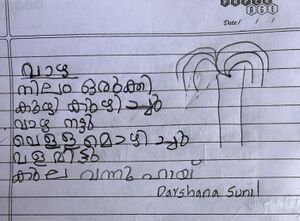 Date / /
വാഴ
നിലം ഒരുക്കി
കുഴി കുഴിച്ചു
വാഴ നട്ടു
വെള്ളമൊഴിച്ചു
വളമിട്ടു
കുല വന്നു ഹായ്
Darshana Sunil